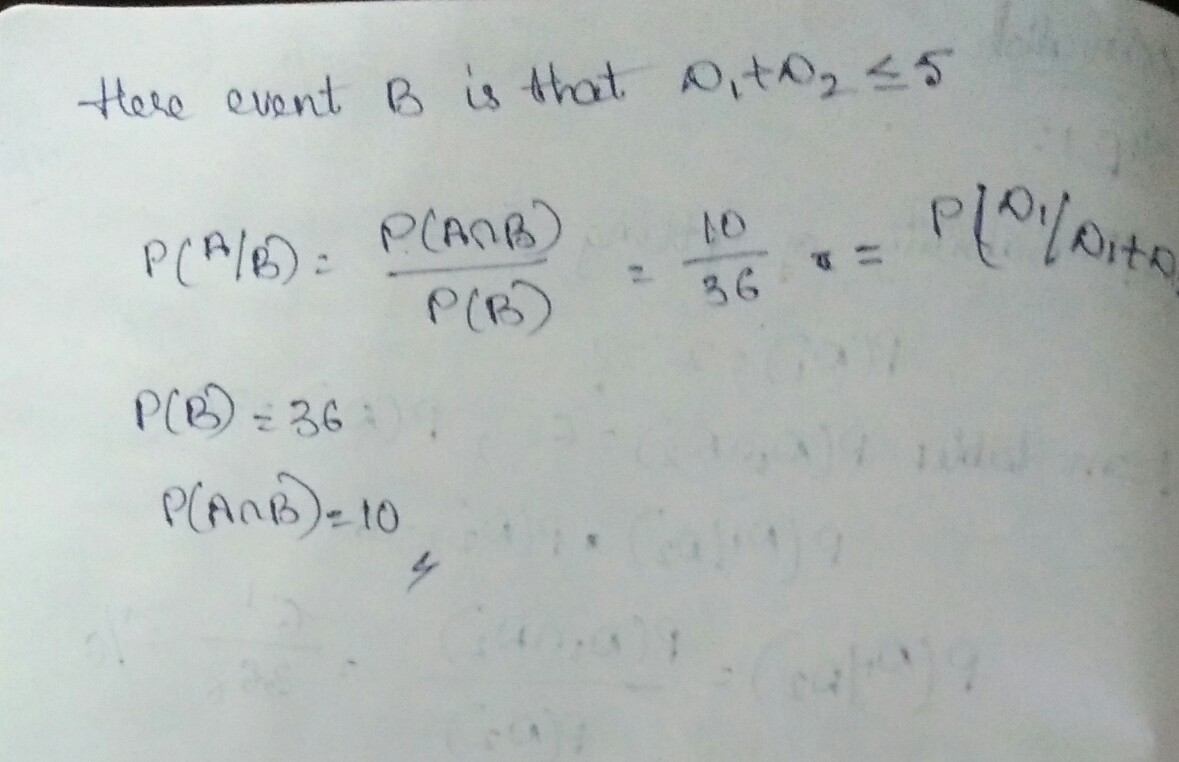 Here event B is that D₁+D₂ ≤ 5
P(A/B) = P(A∩B)/P(B) = 10/36 = P(D₁/D₁+D
P(B) = 36
P(A∩B) = 10